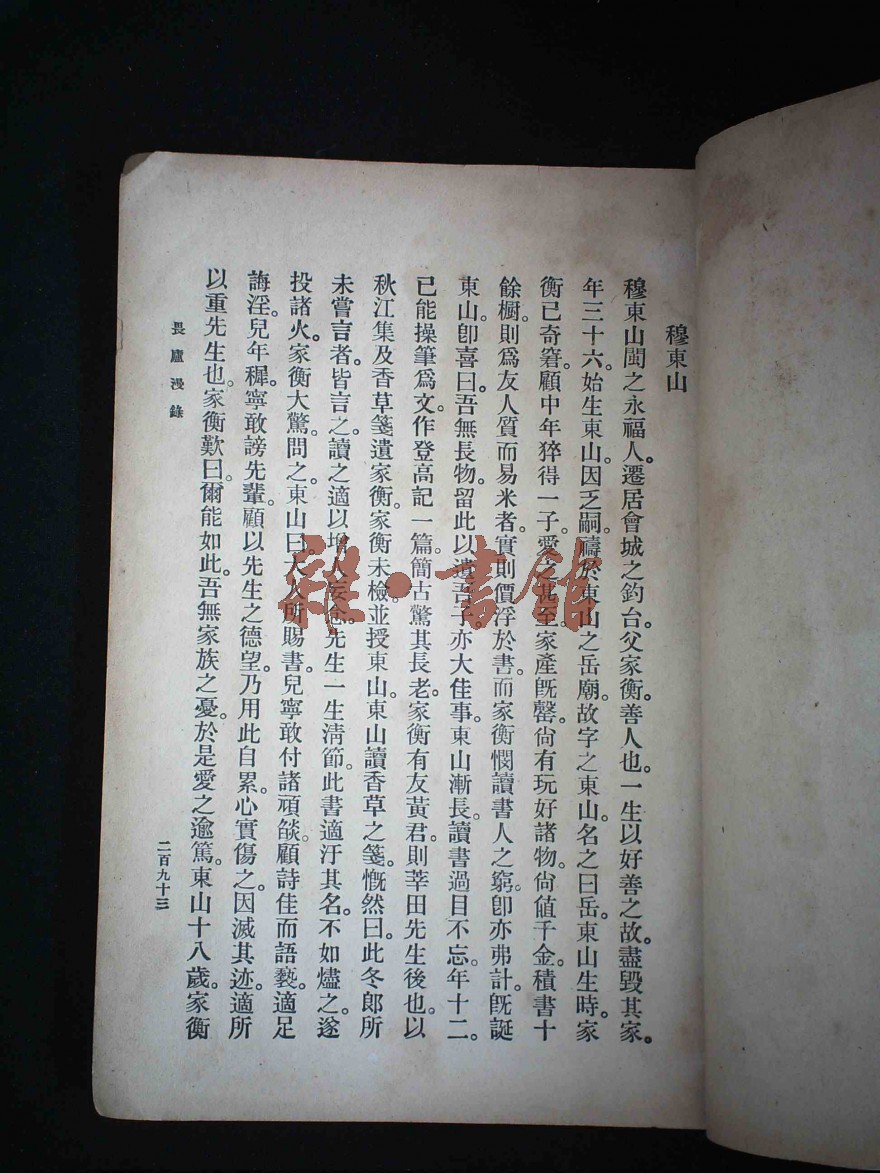 穆東山
穆東山。閩之永福人。遷居會城之釣台。父家衡。善人也。一生以好善之故。盡毀其家。
年三十六。始生東山。因乏嗣。禱於東山之岳廟。故字之東山。名之曰岳。東山生時。家
衡已奇窘。顧中年猝得一子。愛之甚至。家產旣罄。尙有玩好諸物。尙値千金。積書十
餘櫥。則爲友人質而易米者。實則價浮於書。而家衡憫讀書人之窮。卽亦弗計。旣誕
東山。卽喜曰。吾無長物。留此以遺吾子。亦大佳事。東山漸長。讀書過目不忘。年十二。
已能操筆爲文。作登高記一篇。簡古驚其長老。家衡有友黃君。則莘田先生後也。以
秋江集及香草箋遺家衡。家衡未檢。並授東山。東山讀香草之箋。慨然曰。此冬郞所
未嘗言者。皆言之。讀之適以增人妄念。先生一生淸節。此書適汙其名。不如燼之。遂
投諸火。家衡大驚問之。東山曰。大人所賜書。兒寧敢付諸頑燄。顧詩佳而語褻。適足
誨淫。兒年穉。寧敢謗先輩。顧以先生之德望。乃用此自累。心實傷之。因滅其迹。適所
以重先生也。家衡歎曰。爾能如此。吾無家族之憂。於是愛之逾篤。東山十八歲。家衡
畏廬漫錄
二百九十三
雜·書館